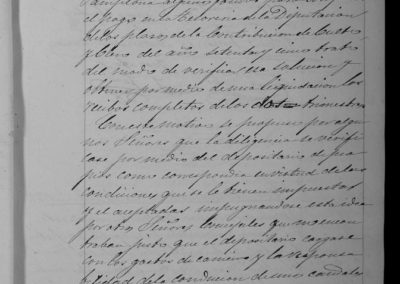 Pamplona algunos
el pago en la Tesoreria de la Diputacion
de los plazos de la Contribucion de Culto
y Clero del año setenta y cinco trató
del modo de verificar esa solucion y
obtener por medio de una liquidacion los
recibos completos de los dos trimestres
Con este motivo se propuso por algu
nos Señores que la diligencia se verifi
case por medio del depositario de pro
pios como correspondia en virtud de las
condiciones que se le tienen impuestas
y el aceptadas impugnandose esta idea
por otros Señores Concejales que no encon
traban justo que el depositario cargase
con los gastos de camino y la responsa
bilidad de la conduccion de unos caudales